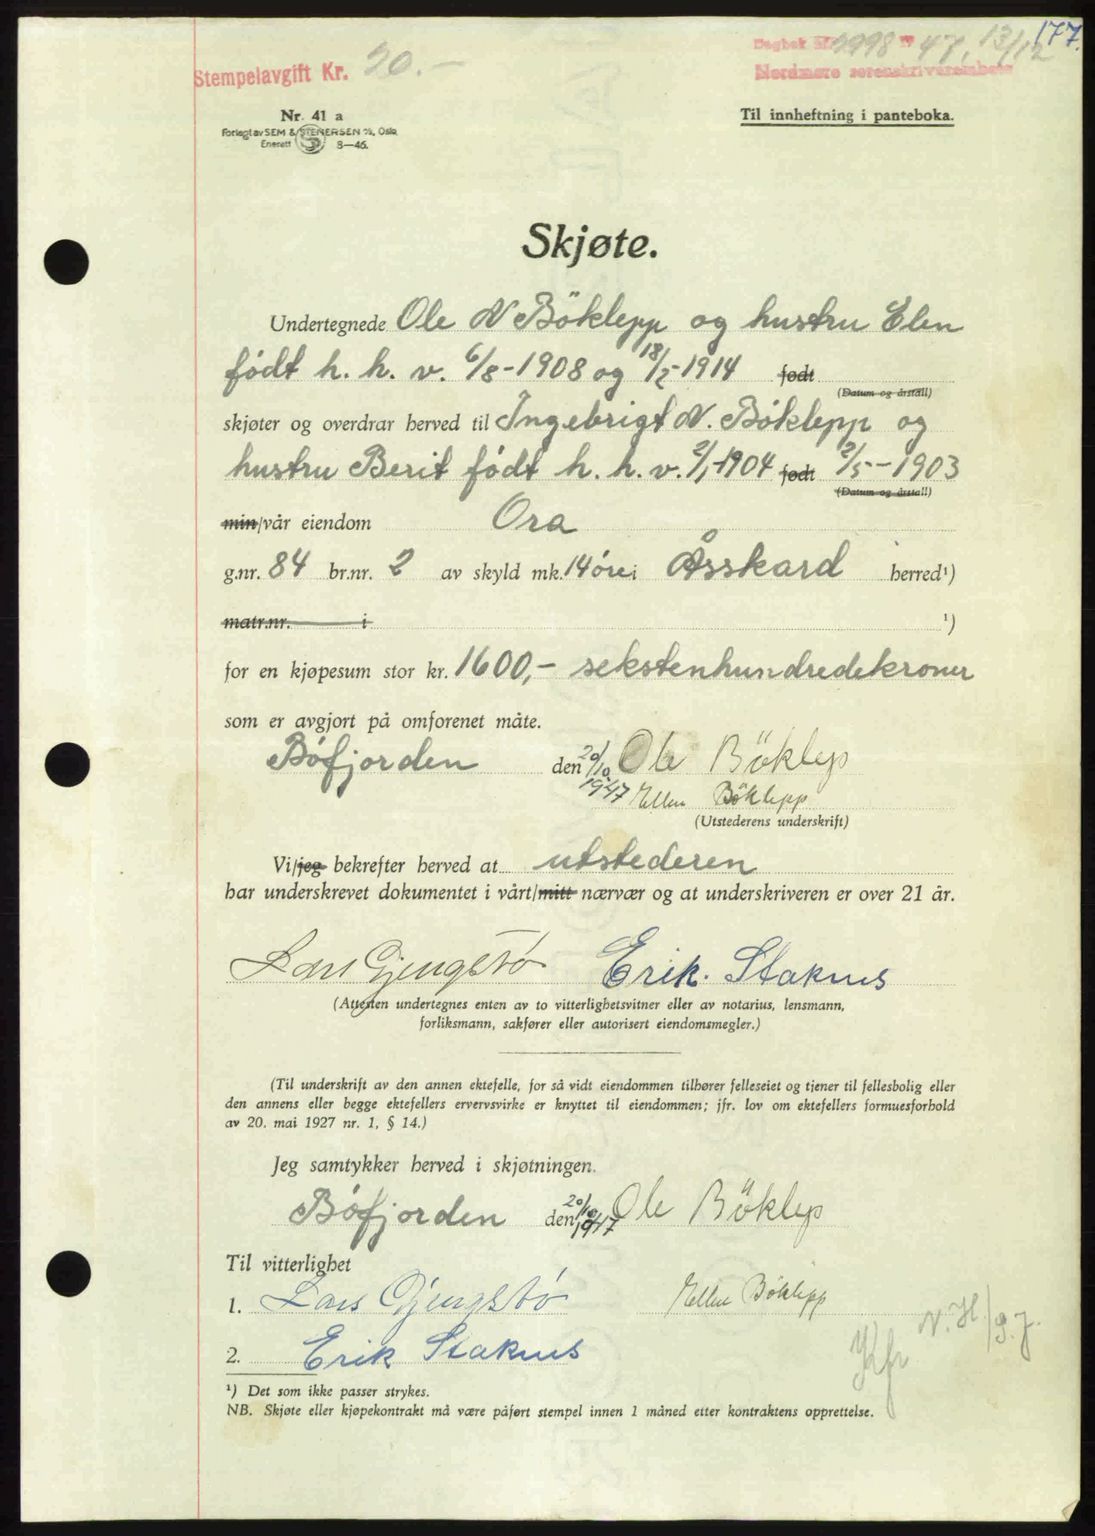 177.
Stempelavgift Kr. 20.-
Dagbok Nr. 2998 19 47, 13/12
Nordmøre sorenskriverembete
Nr. 41 a
Forlagt av SEM & STENERSEN A/S, Oslo
Enerett 8-46.
Til innheftning i panteboka.
Skjøte.
Undertegnede Ole N Böklepp og hustru Elen
født h. h. v. 6/8-1908 og 18/2-1914 født
(Datum og årstall)
skjøter og overdrar herved til Ingebrigt N. Böklepp og
hustru Berit født h. h. v. 2/1-1904 født 2/5-1903
(Datum og årstall)
min/vår eiendom Ora
g.nr. 84 br.nr. 2 av skyld mk. 14 øre i Åsskard herred¹)
matr.nr. i ¹)
for en kjøpesum stor kr. 1600,- sekstenhundredekroner
som er avgjort på omforenet måte.
Bøfjorden den 20/10 1947 Ole Böklep
Ellen Böklepp
(Utstederens underskrift)
Vi/jeg bekrefter herved at utstederen
har underskrevet dokumentet i vårt/mitt nærvær og at underskriveren er over 21 år.
Lars Gjengstø Erik Staknes
(Attesten undertegnes enten av to vitterlighetsvitner eller av notarius, lensmann,
forliksmann, sakfører eller autorisert eiendomsmegler.)
(Til underskrift av den annen ektefelle, for så vidt eiendommen tilhører felleseiet og tjener til fellesbolig eller
den annens eller begge ektefellers ervervsvirke er knyttet til eiendommen; jfr. lov om ektefellers formuesforhold
av 20. mai 1927 nr. 1, § 14.)
Jeg samtykker herved i skjøtningen.
Bøfjorden den 20/10 1947 Ole Böklep
Til vitterlighet
1. Lars Gjengstø Ellen Böklepp
2. Erik Staknes Kfr N. H./g. J.
¹) Det som ikke passer strykes.
NB. Skjøte eller kjøpekontrakt må være påført stempel innen 1 måned etter kontraktens opprettelse.